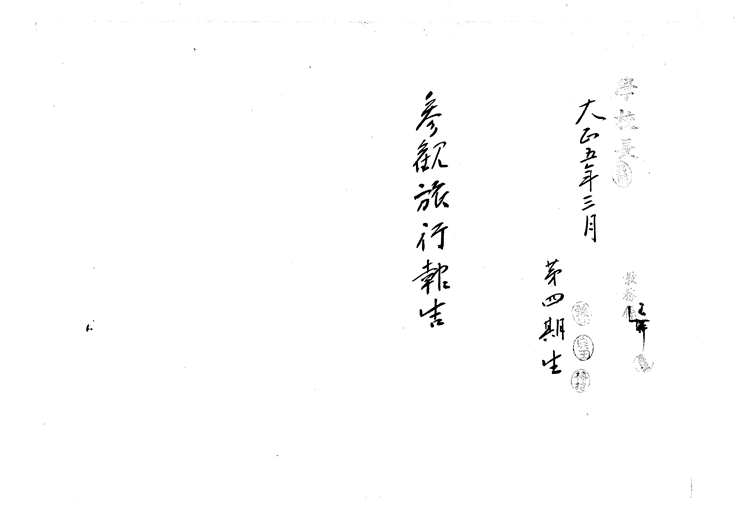 學校長
大正五年三月
教務係
第四期生
參觀旅行報告